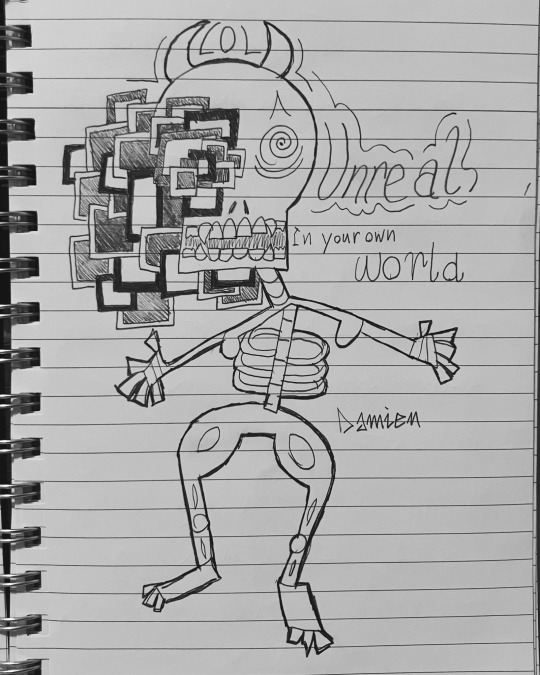 LOL
Unreal
In your own
world
Damien